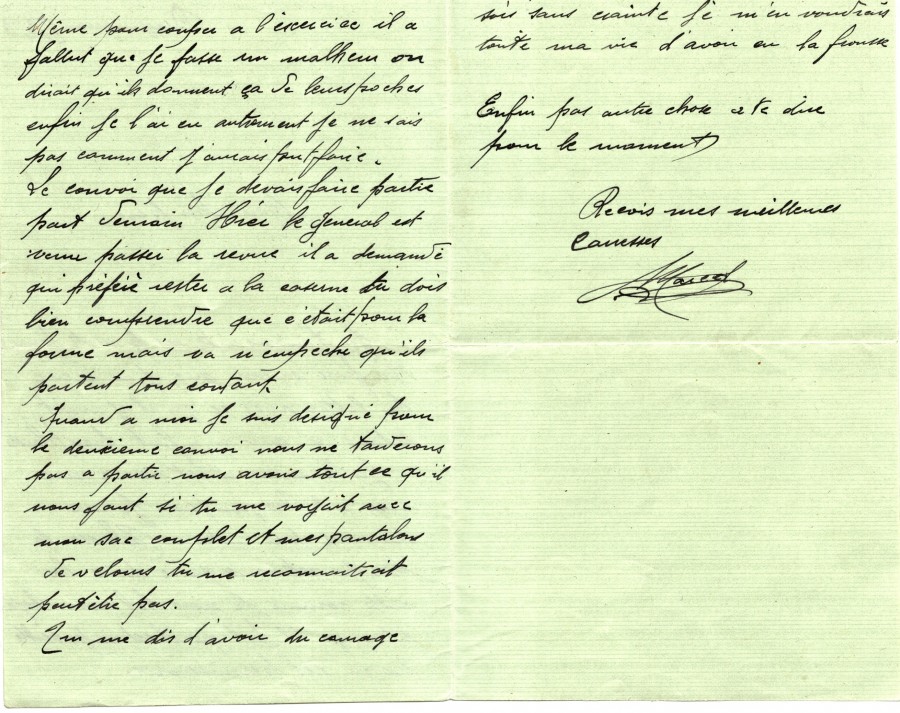 Même pour couper a l'exercice il a
fallut que je fasse un malheur on
dirait qu'ils donnent ça de leurs poches
enfin je l'ai eu autrement je ne sais
pas comment j'aurais put faire.
Le convoi que je devais faire partie
part demain Hier le general est
venu passer la revue il a demandé
qui préfère rester a la caserne tu dois
bien comprendre que c'était pour la
forme mais va n'empeche qu'ils
partent tous contant.
Quand a moi je suis designé pour
le deuxieme convoi nous ne tarderons
pas a partir nous avons tout ce qu'il
nous faut si tu me voyait avec
mon sac complet et mes pantalons
de velours tu me reconnaitrait
peutêtre pas.
Tu me dis d'avoir du courage
sois sans crainte je m'en voudrais
toute ma vie d'avoir eu la frousse
Enfin pas autre chose a te dire
pour le moment
Recois mes meilleures
Caresses
Marcel